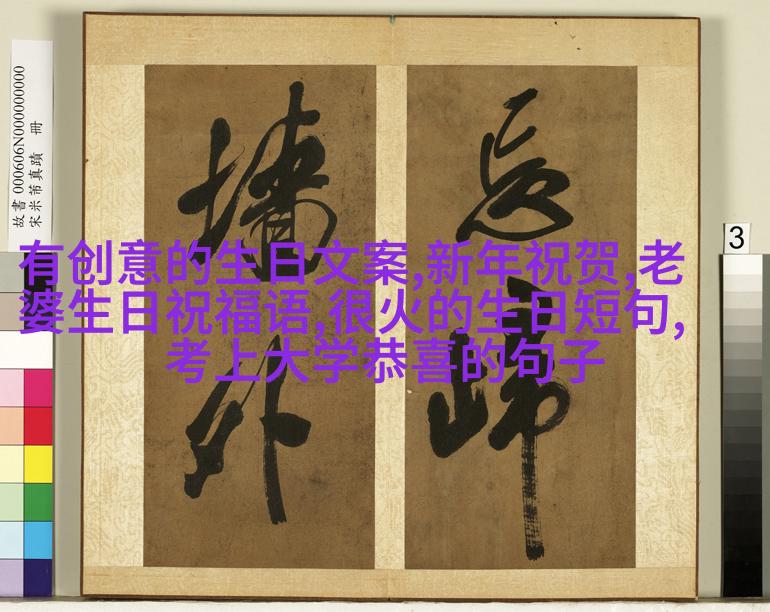 有创意的生日文案,新年祝贺,老
婆生日祝福语,很火的生日短句,
考上大学恭喜的句子
故書 000606N000000000
宋米芾真蹟 冊
3
墻
外